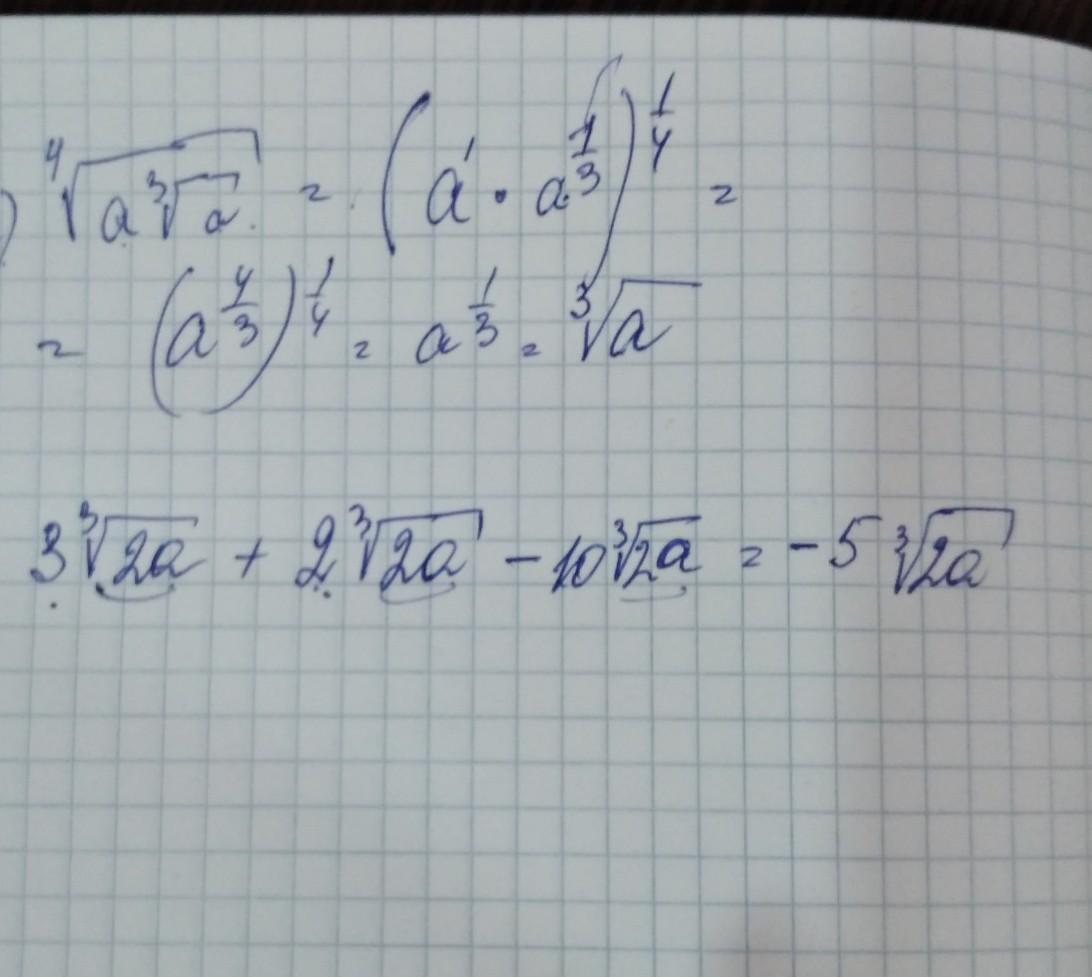 ) ⁴√(a ³√a) = (a¹ · a^(1/3))^(1/4) =
= (a^(4/3))^(1/4) = a^(1/3) = ³√a
3 ³√(2a) + 2 ³√(2a) − 10 ³√(2a) = −5 ³√(2a)